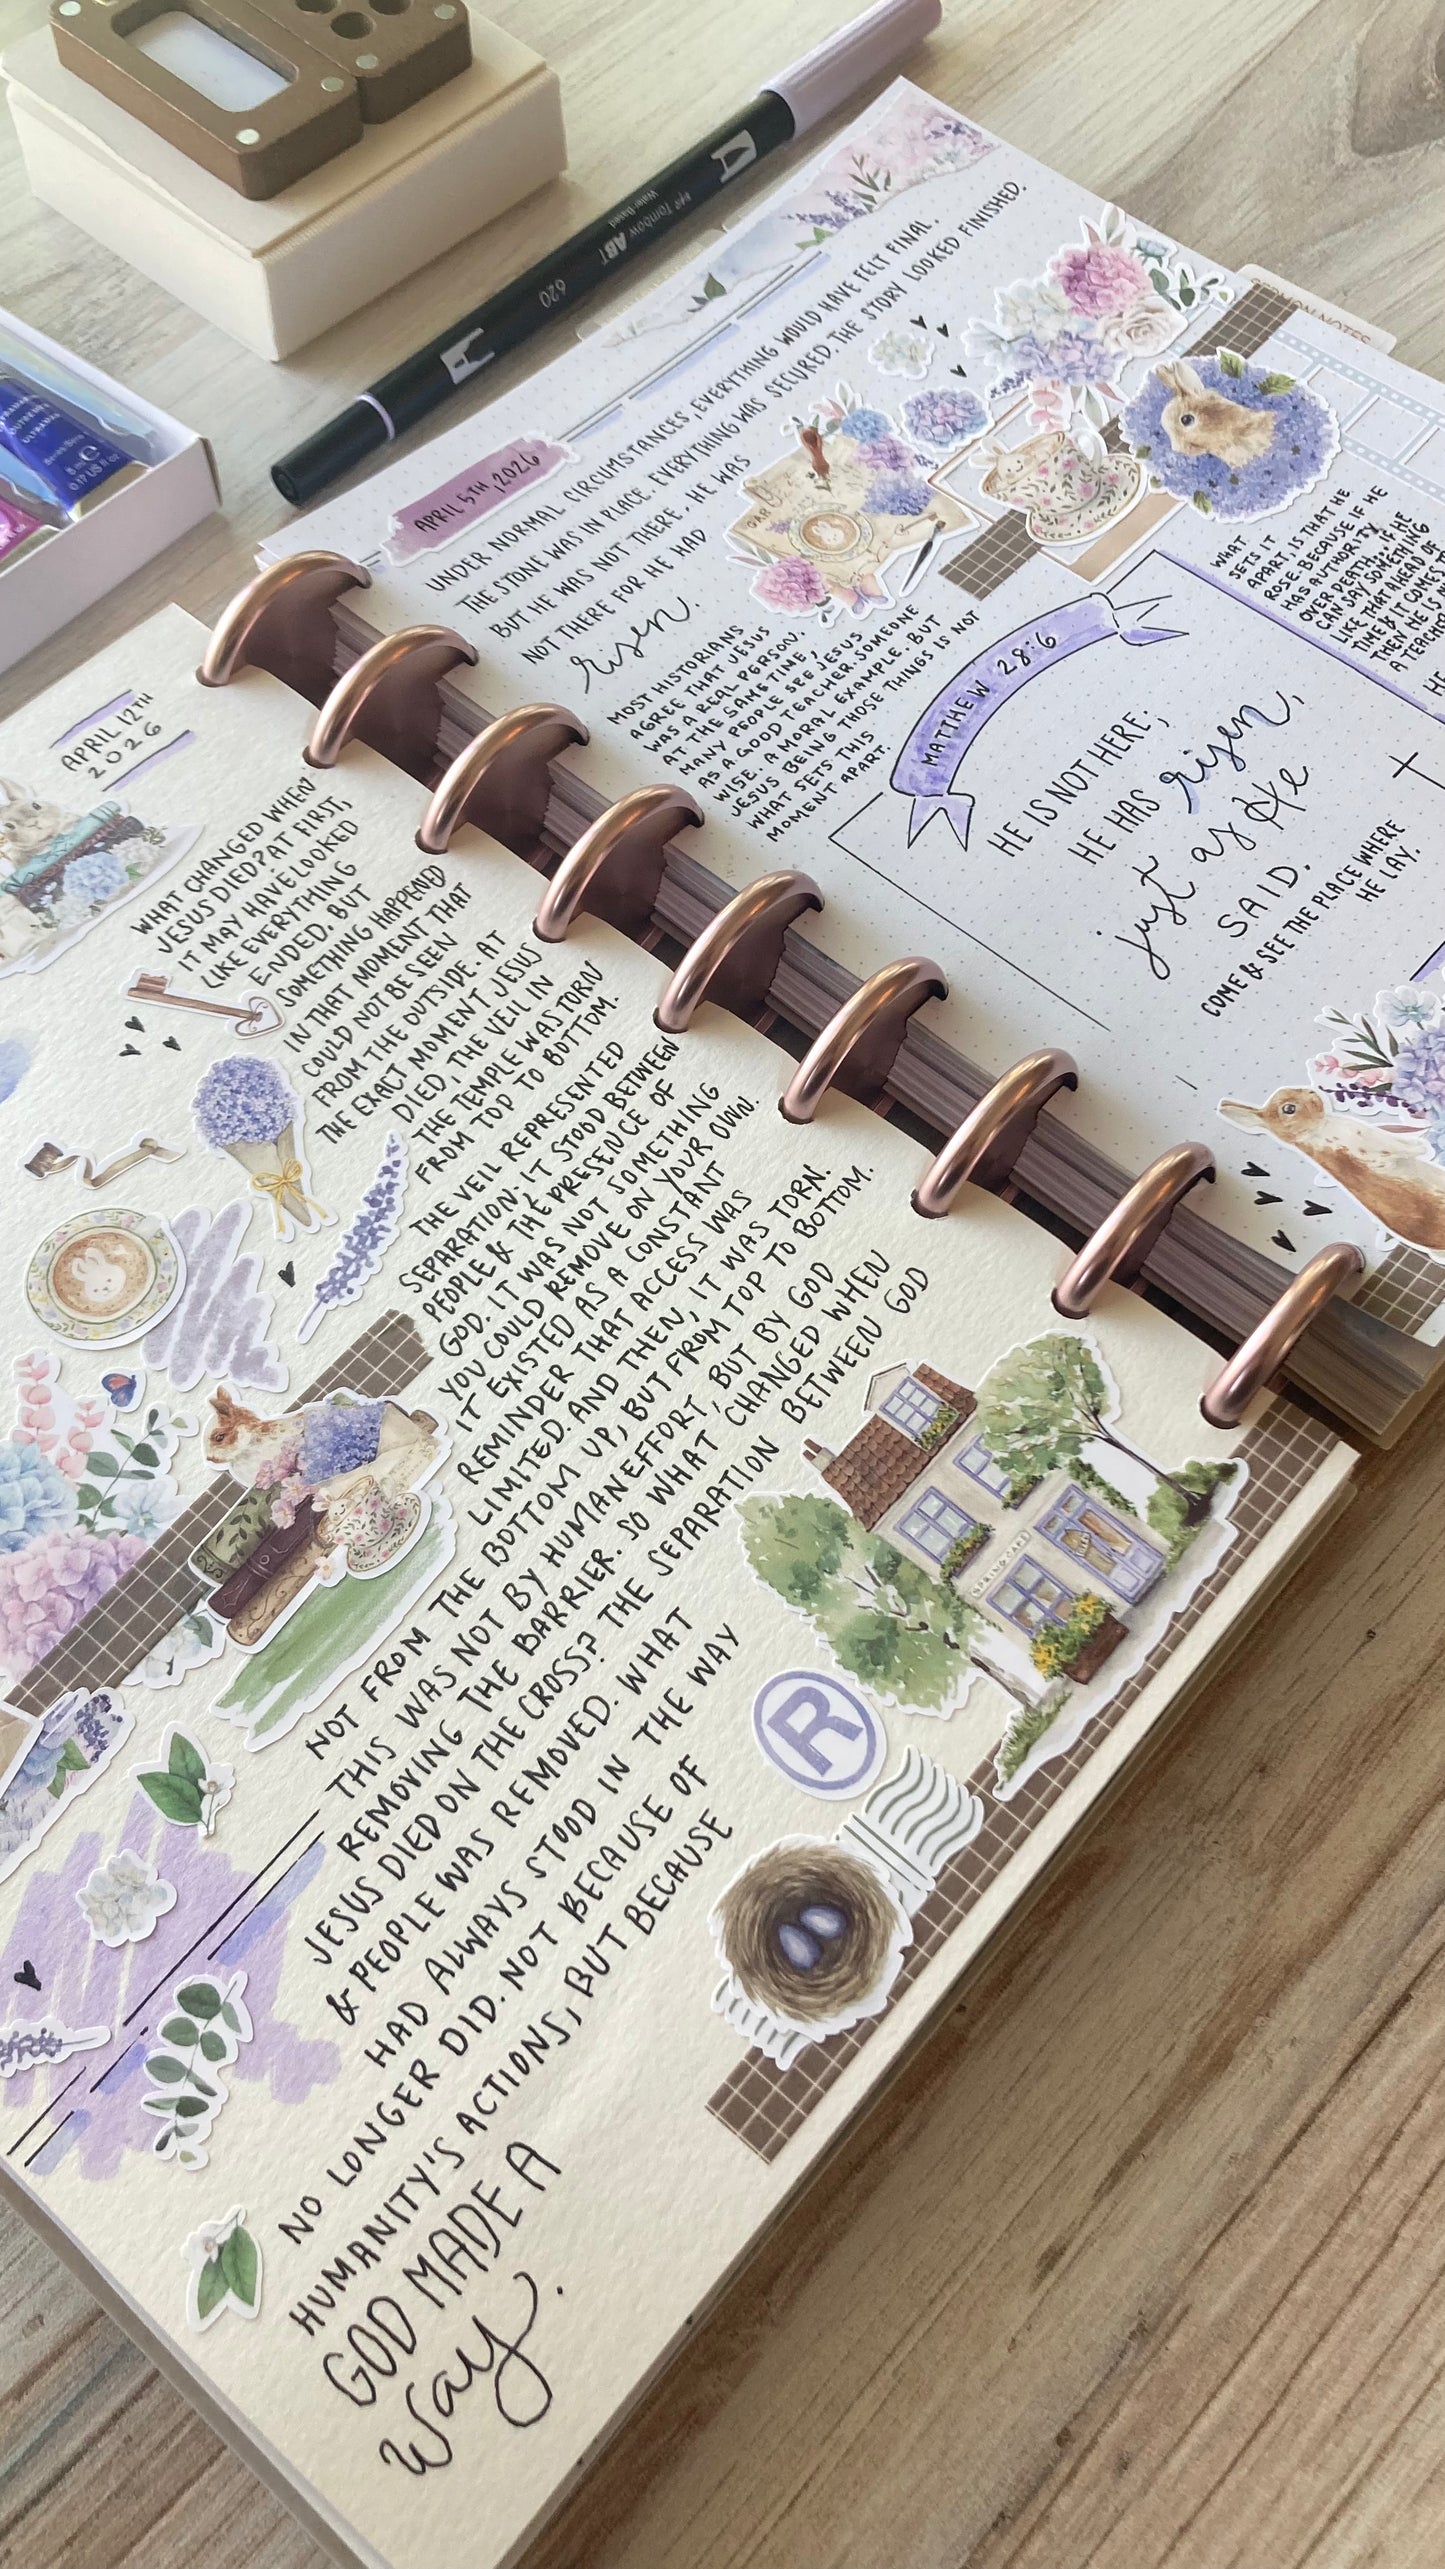 APRIL 5TH, 2026
UNDER NORMAL CIRCUMSTANCES, EVERYTHING WOULD HAVE FELT FINAL.
THE STONE WAS IN PLACE. EVERYTHING WAS SECURED. THE STORY LOOKED FINISHED.
BUT HE WAS NOT THERE, HE WAS
NOT THERE FOR HE HAD
risen.
MOST HISTORIANS
AGREE THAT JESUS
WAS A REAL PERSON.
AT THE SAME TIME,
MANY PEOPLE SEE JESUS
AS A GOOD TEACHER. SOMEONE
WISE. A MORAL EXAMPLE. BUT
JESUS BEING THOSE THINGS IS NOT
WHAT SETS THIS
MOMENT APART.
MATTHEW 28:6
HE IS NOT HERE;
HE HAS risen,
just as He
SAID.
COME & SEE THE PLACE WHERE
HE LAY.
WHAT
SETS IT
APART, IS THAT HE
ROSE. BECAUSE IF HE
HAS AUTHORITY
OVER DEATH, IF HE
CAN SAY SOMETHING
LIKE THAT AHEAD OF
TIME & IT COMES
THEN HE IS
A TEACHER
HE
SERMON NOTES
APRIL 12TH
2026
WHAT CHANGED WHEN
JESUS DIED? AT FIRST,
IT MAY HAVE LOOKED
LIKE EVERYTHING
ENDED. BUT
SOMETHING HAPPENED
IN THAT MOMENT THAT
COULD NOT BE SEEN
FROM THE OUTSIDE. AT
THE EXACT MOMENT JESUS
DIED, THE VEIL IN
THE TEMPLE WAS TORN
FROM TOP TO BOTTOM.
THE VEIL REPRESENTED
SEPARATION. IT STOOD BETWEEN
PEOPLE & THE PRESENCE OF
GOD. IT WAS NOT SOMETHING
YOU COULD REMOVE ON YOUR OWN.
IT EXISTED AS A CONSTANT
REMINDER THAT ACCESS WAS
LIMITED. AND THEN, IT WAS TORN.
NOT FROM THE BOTTOM UP, BUT FROM TOP TO BOTTOM.
THIS WAS NOT BY HUMAN EFFORT, BUT BY GOD
REMOVING THE BARRIER. SO WHAT CHANGED WHEN
JESUS DIED ON THE CROSS? THE SEPARATION BETWEEN GOD
& PEOPLE WAS REMOVED. WHAT
HAD ALWAYS STOOD IN THE WAY
NO LONGER DID. NOT BECAUSE OF
HUMANITY'S ACTIONS, BUT BECAUSE
GOD MADE A
Way.
SPRING CAFE
R
Tombow ABT
Water-Based
620